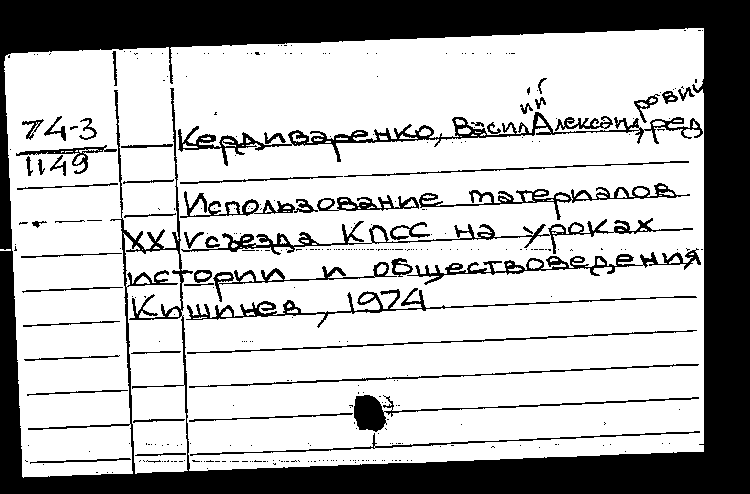 74-3
1149
Кердиваренко, Василий Александрович, ред
Использование материалов
XXIV съезда КПСС на уроках
истории и обществоведения
Кишинев, 1974